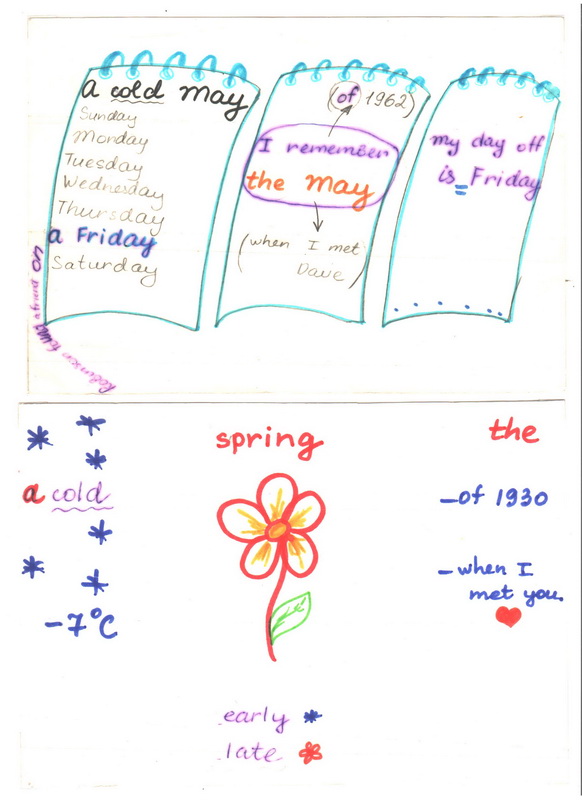 a cold May
Sunday
Monday
Tuesday
Wednesday
Thursday
a Friday
Saturday
Robinson afriend on
(of 1962)
I remember
the May
(when I met
Dave)
my day off
is Friday
a cold
-7°C
spring
early
late
the
- of 1930
- when I
met you.